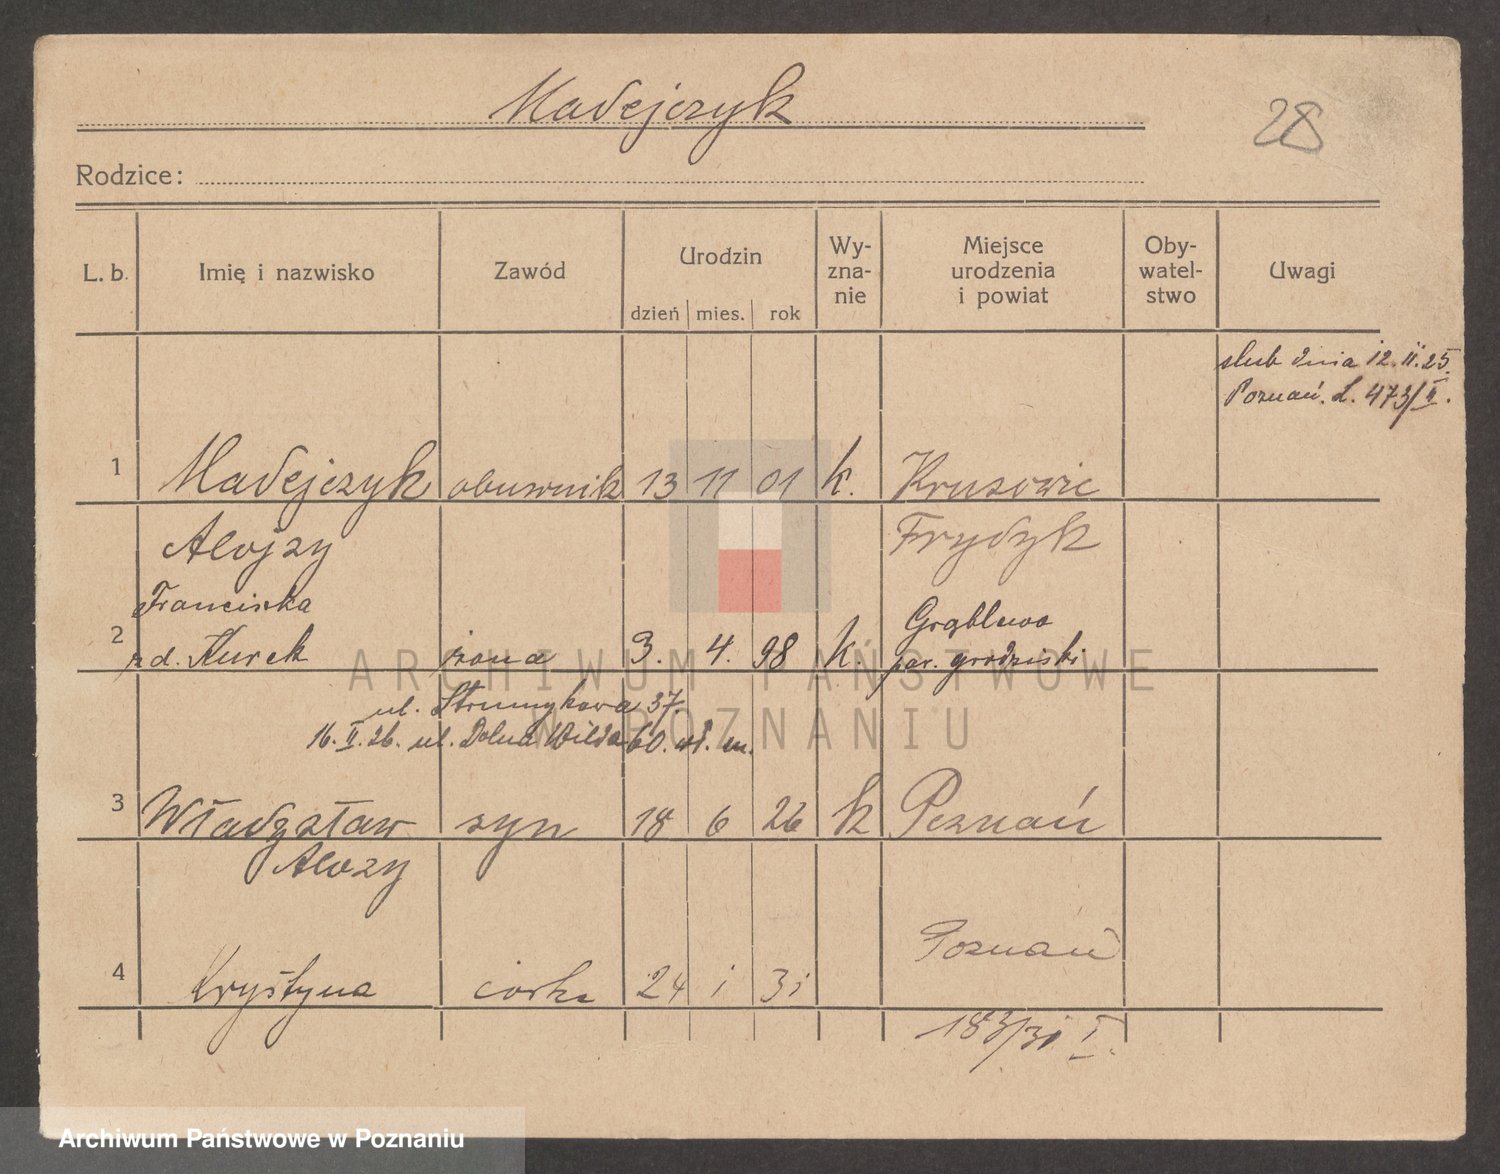 Madejczyk
28
Rodzice:
L. b. Imię i nazwisko Zawód Urodzin dzień mies. rok Wy-zna-nie Miejsce urodzenia i powiat Oby-watel-stwo Uwagi
slub dnia 12.II.25.
Poznań. L. 473/II.
1 Madejczyk obuwnik 13 11 01 k. Krusowic
Alojzy Frydyk
Franciszka Grąblewo
2 zd. Kurek żona 3. 4. 98 k. pow. grodziski
ul. Strumykowa 37.
16.II.26. ul. Dolna Wilda 60. m.
3 Władysław syn 18 6 26 k Poznań
Alozy
Poznań
4 Krystyna córka 24 i 3i
183/31 I.
ARCHIWUM PAŃSTWOWE
W POZNANIU
Archiwum Państwowe w Poznaniu